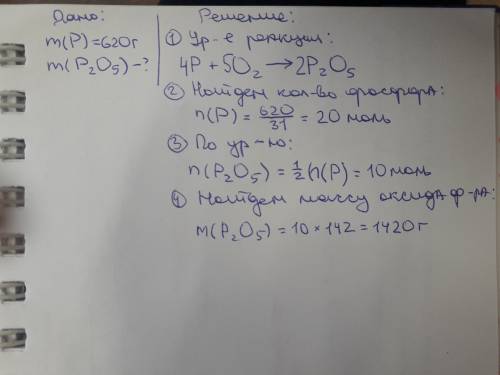 Дано:
m(P)=620г
m(P₂O₅)-?
Решение:
① Ур-е реакции:
4P + 5O₂ → 2P₂O₅
② Найдем кол-во фосфора:
n(P) = 620/31 = 20 моль
③ По ур-ю:
n(P₂O₅) = 1/2 n(P) = 10 моль
④ Найдем массу оксида ф-ра:
m(P₂O₅) = 10 × 142 = 1420 г